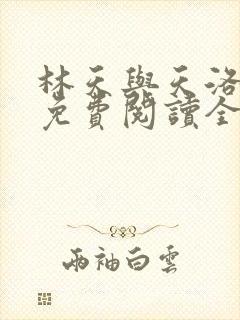 林天與天洛
免費閱讀全
兩袖白雲